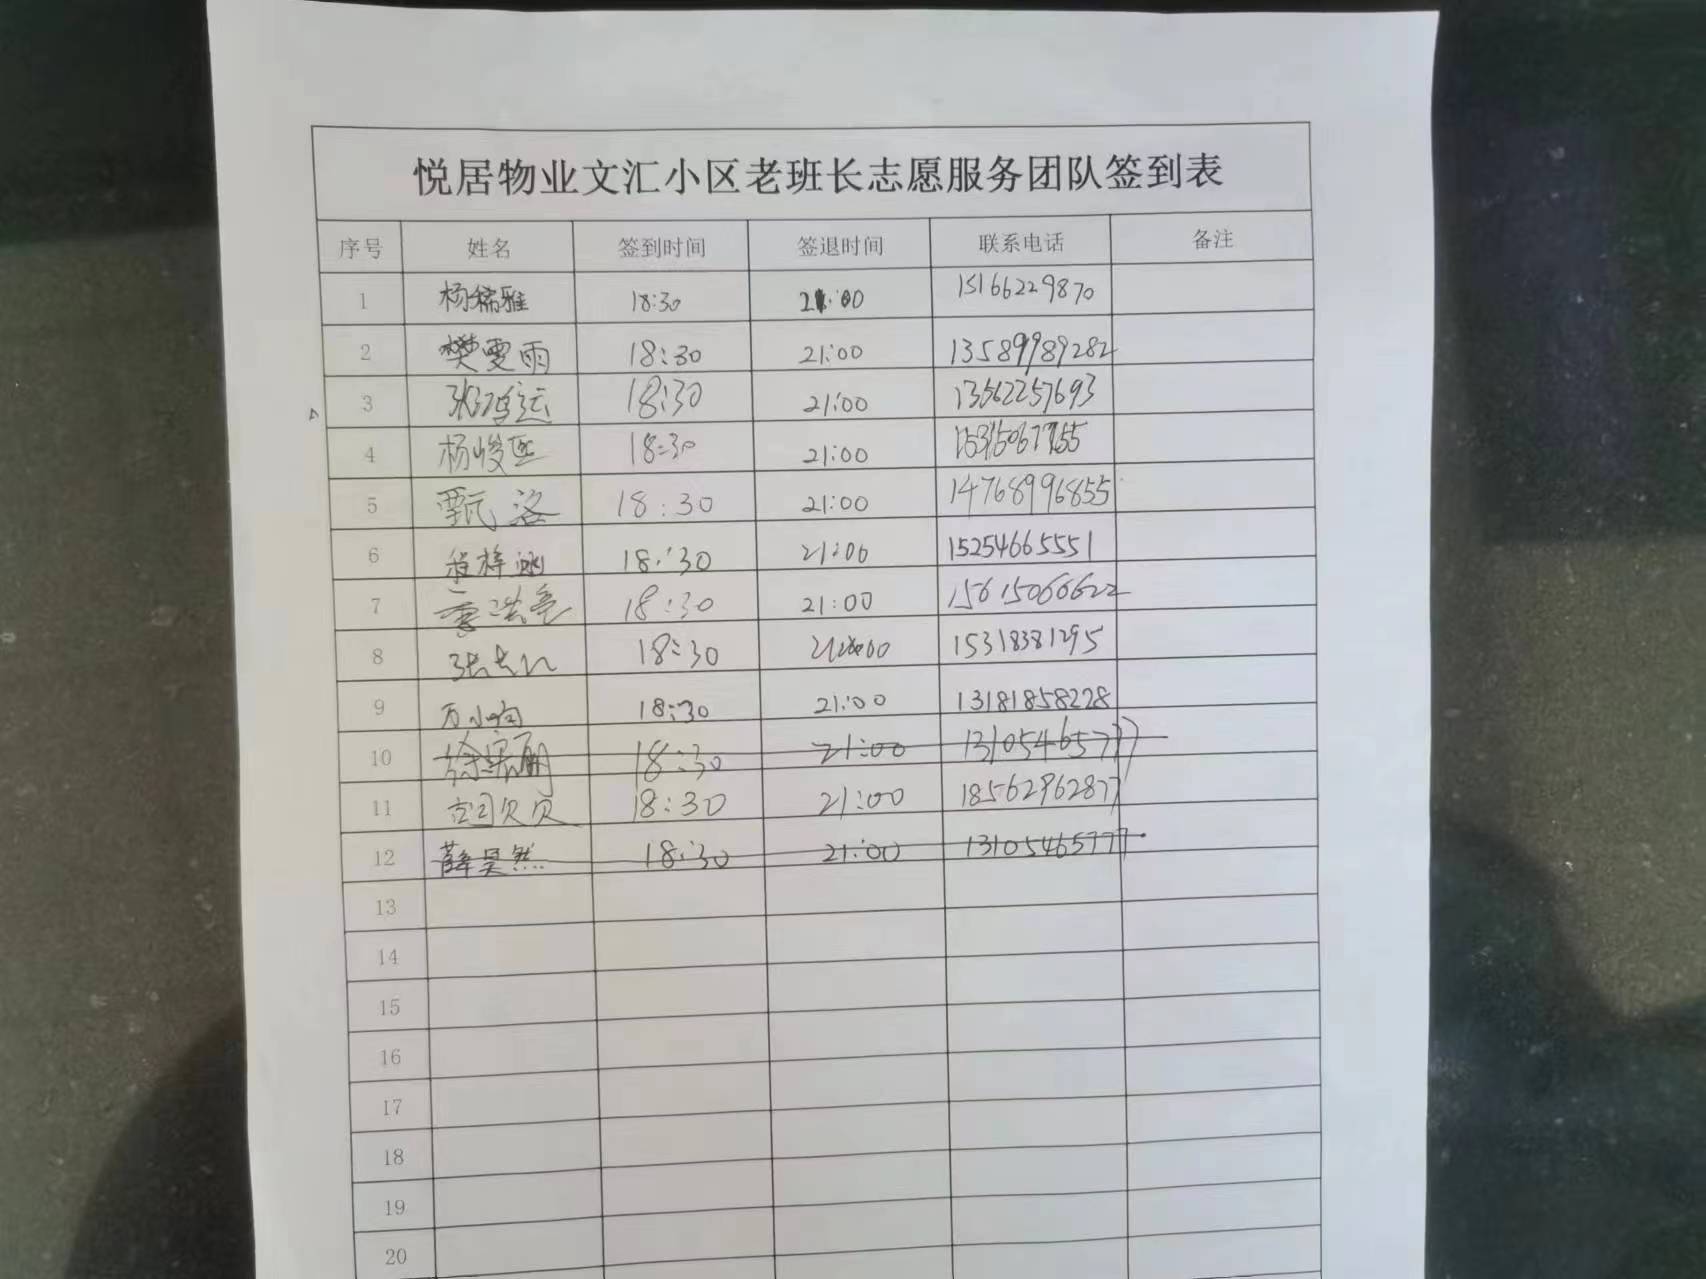 悦居物业文汇小区老班长志愿服务团队签到表
序号 姓名 签到时间 签退时间 联系电话 备注
1 杨儒雅 18:30 21:00 15166229870
2 樊雯雨 18:30 21:00 13589989282
3 张鸿运 18:30 21:00 13562257693
4 杨峻熙 18:30 21:00
5 甄洛 18:30 21:00 14768996855
6 程梓涵 18:30 21:00 15254665551
7 18:30 21:00 15615066622
8 18:30 15318381295
9 万小向 18:30 21:00 13181858228
10 18:30 21:00 13105465777
11 18:30 21:00 18562962877
12 薛昊然 18:30 21:00 13105465777
13
14
15
16
17
18
19
20